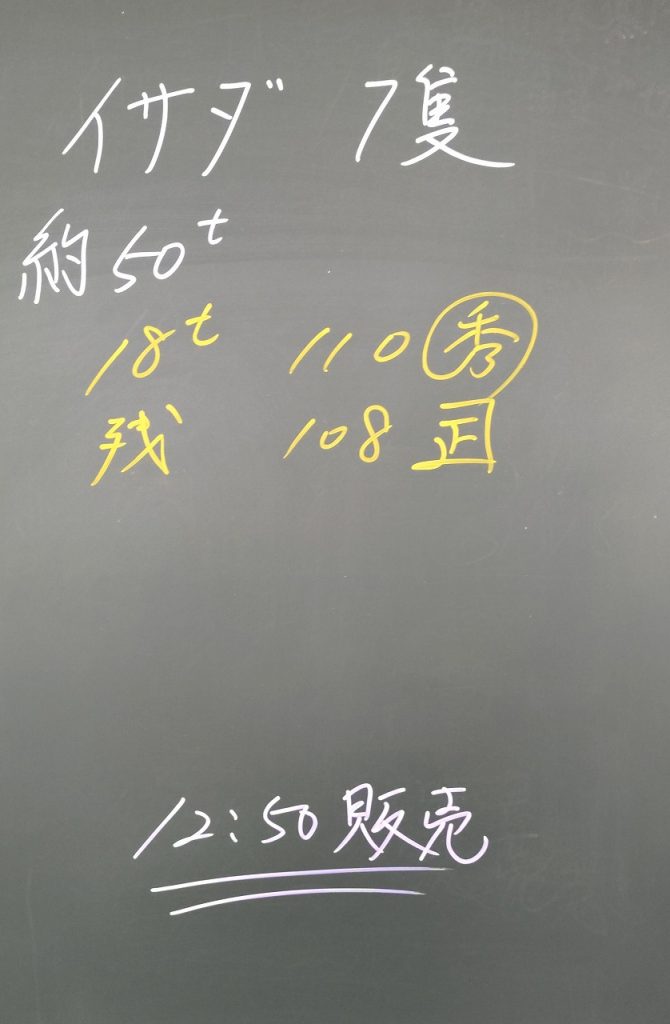 イサダ 7隻
約50t
18t 110 秀
残 108 正
12:50販売